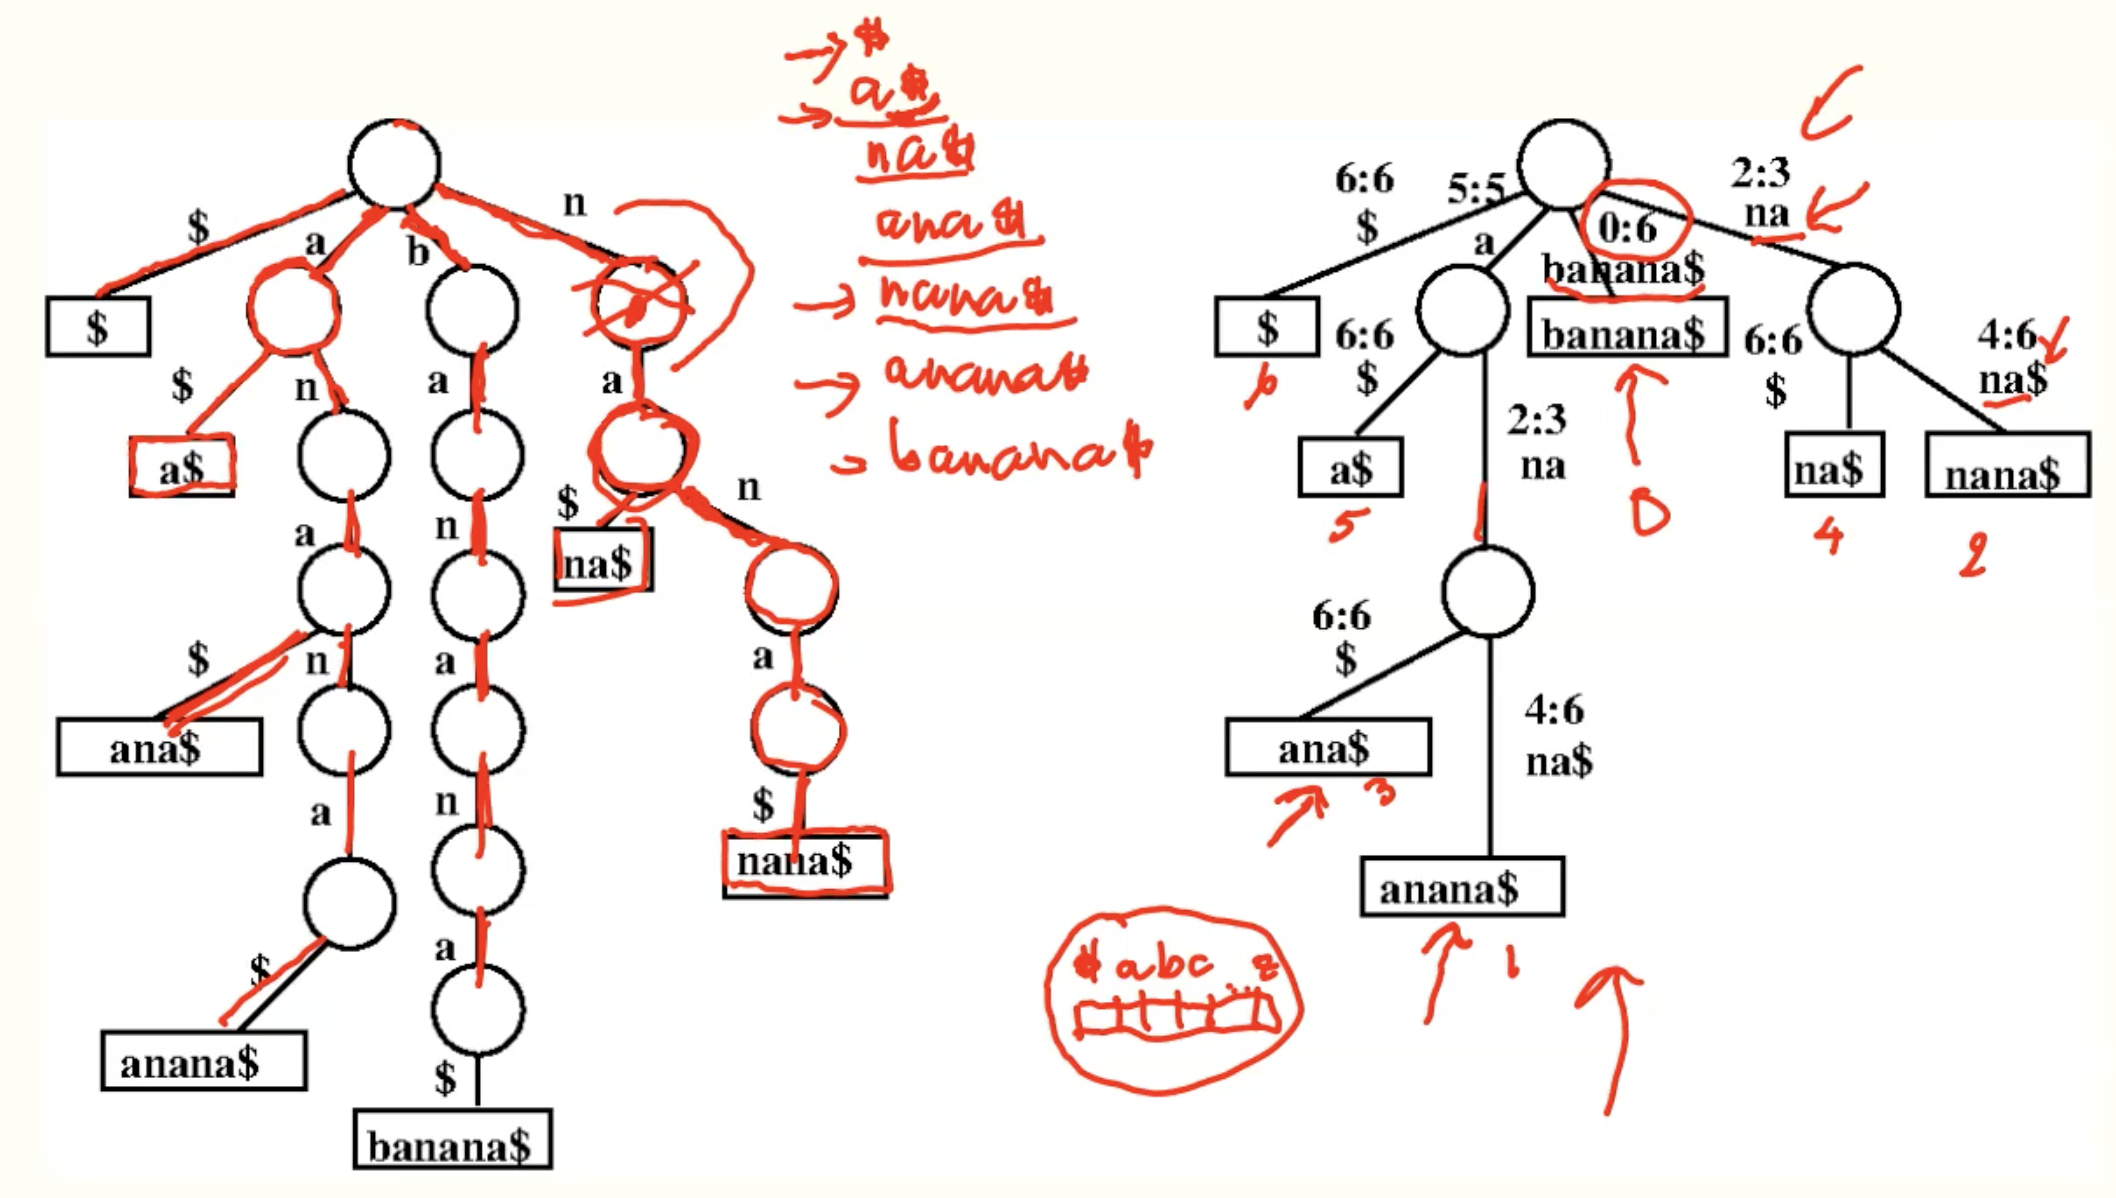 $
a$
na$
ana$
nana$
ananas$
banana$
$
a
b
n
$
$
n
a$
a
n
a
$
n
ana$
a
$
anana$
a
n
a
n
a
$
banana$
a
$
na$
n
a
$
nana$
6:6
$
5:5
a
0:6
banana$
2:3
na
$
6
6:6
$
a$
5
banana$
0
2:3
na
6:6
$
na$
4
4:6
na$
nana$
2
6:6
$
ana$
3
4:6
na$
anana$
1
$ a b c ... z